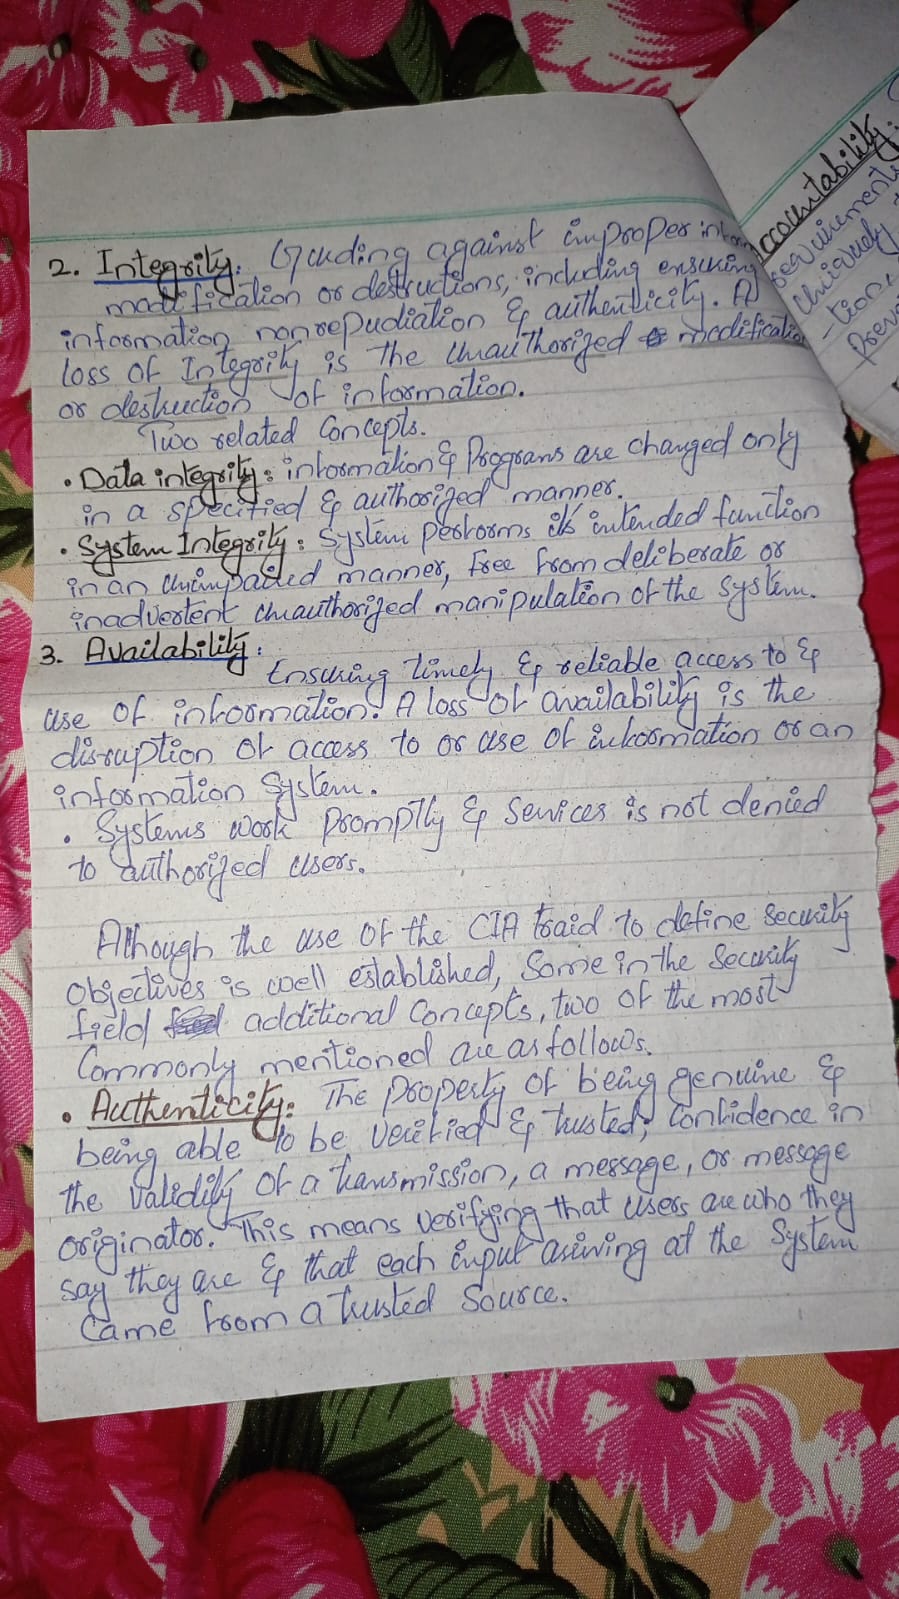 2. Integrity: Guding against improper
modification or destructions, including ensuring
information nonrepudiation & authenticity. A
loss of Integrity is the unauthorized modification
or destruction of information.
Two related Concepts.
• Data integrity: information & Programs are changed only
in a specified & authorized manner.
• System Integrity: System performs its intended function
in an unimpaired manner, free from deliberate or
inadvertent unauthorized manipulation of the system.
3. Availability:
Ensuring timely & reliable access to &
use of information. A loss of availability is the
disruption of access to or use of information or an
information System.
• Systems work promptly & Services is not denied
to authorized users.
Although the use of the CIA traid to define security
Objectives is well established, Some in the Security
field additional Concepts, two of the most
Commonly mentioned are as follows.
• Authenticity: The property of being genuine &
being able to be verified & trusted; Confidence in
the validity of a transmission, a message, or message
originator. This means verifying that users are who they
say they are & that each input arriving at the System
Came from a trusted Source.
ccountability:
requirements
Uniquely
-tion,